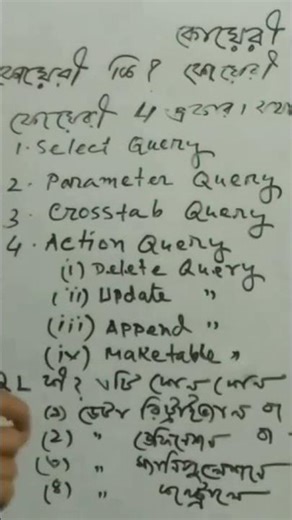 কোয়েরী
কোয়েরী কি? কোয়েরী
কোয়েরী 4 প্রকার। যথা
1. Select Query
2. Parameter Query
3. Crosstab Query
4. Action Query
(i) Delete Query
(ii) Update "
(iii) Append "
(iv) Maketable "
QL কী? কোন কোন
(১) ডেটা
(2) " ডেফিনেশন
(৩) " ম্যানিপুলেশন
(৪) " কন্ট্রোল